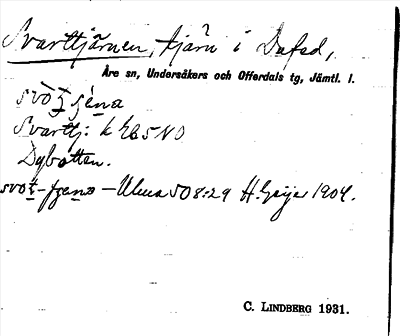 Svarttjärnen, tjärn i Dufed,
Åre sn, Undersåkers och Offerdals tg, Jämtl. l.
Svarttj: k Eb 5 NO
Dybotten.
Ulma 508:29 H. Geijer 1904.
C. LINDBERG 1931.